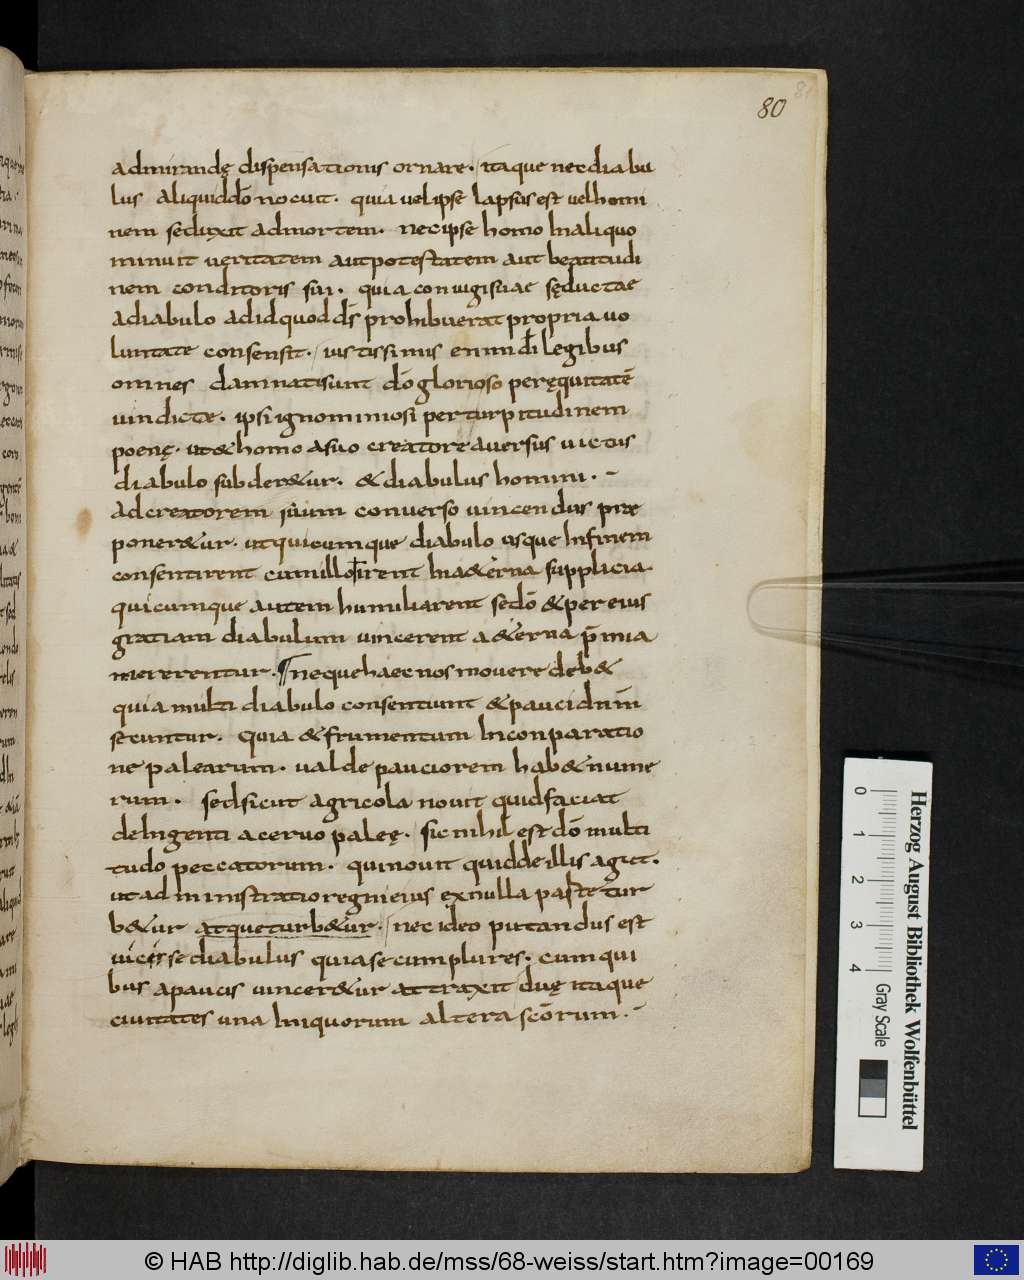 80
admirandę dispensationis ornare. itaque nec diabu
lus aliquid dō nocuit. quia uel ipse lapsus est uel homi
nem seduxit ad mortem. nec ipse homo In aliquo
minuit ueritatem aut potestatem aut beatitudi
nem conditoris sui. quia coniugi suae sęductae
a diabulo ad id quod ds̄ prohibuerat propria uo
luntate consensit. iustissimis enim dī legibus
omnes damnati sunt dō glorioso per ęquitatē
uindicte. ipsi ignominiosi per turpitudinem
poenę. ut & homo a suo creatore auersus uictus
diabulo subder&ur. & diabulus homini.
ad creatorem suum conuerso uincendus prae
poner&ur. ut quicumque diabulo usque In finem
consentirent cum illo irent In a&erna supplicia.
quicumque autem humiliarent se dō & per eius
gratiam diabulum uincerent a&erna p̄mia
mererentur. neque haec nos mouere deb&
quia multi diabulo consentiunt & pauci dn̄m
secuntur. quia & frumentum In conparatio
ne palearum. ualde pauciorem hab& nume
rum. sed sicut agricola nouit quid faciat
de Ingenti aceruo paleę. sic nihil est dō multi
tudo peccatorum. qui nouit quid de illis agat.
ut administratio regni eius ex nulla parte tur
b&ur atque turb&ur. nec ideo putandus est
uicisse diabulus quia secum plures. cum qui
bus a paucis uincer&ur attraxit duę itaque
ciuitates una Iniquorum altera scōrum.
0 1 2 3 4
Gray Scale
Herzog August Bibliothek Wolfenbüttel
© HAB http://diglib.hab.de/mss/68-weiss/start.htm?image=00169